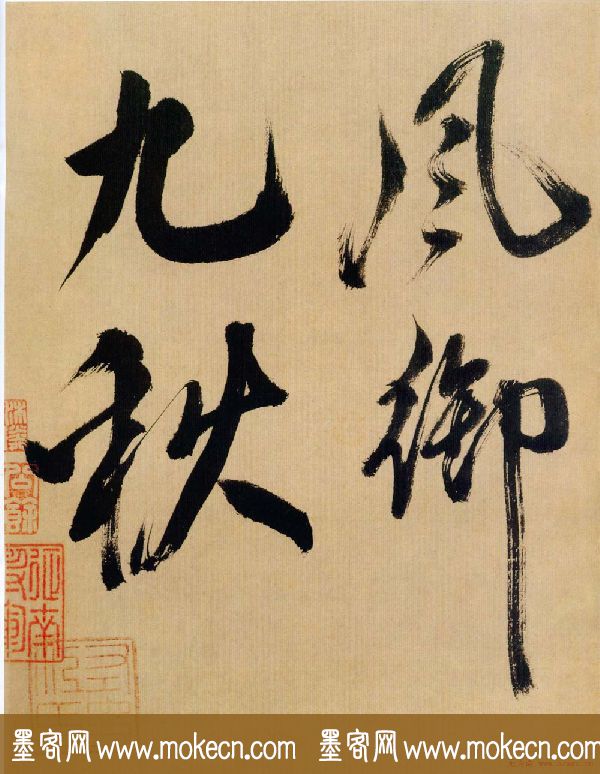 風御
九秋
墨客网 www.mokecn.com 墨客网 www.mokecn.com